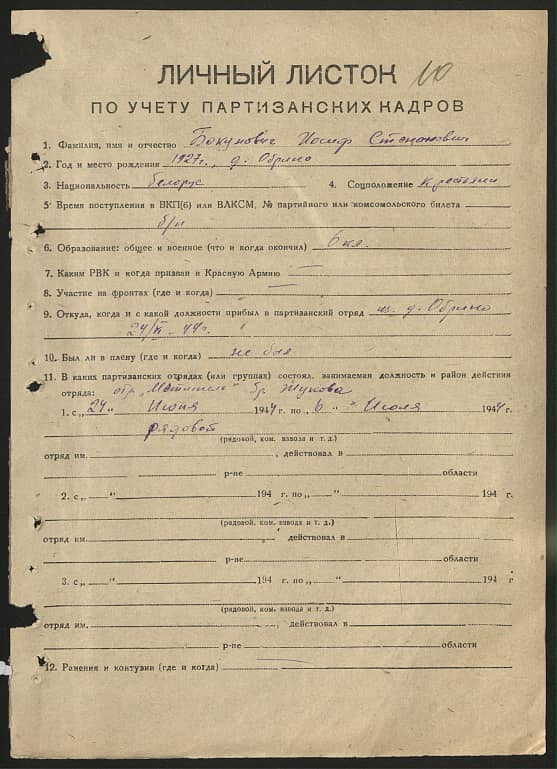 ЛИЧНЫЙ ЛИСТОК 10
ПО УЧЕТУ ПАРТИЗАНСКИХ КАДРОВ
1. Фамилия, имя и отчество Бакунович Иосиф Степанович
2. Год и место рождения 1927г., д. Обрино
3. Национальность белорус 4. Соцположение крестьянин
5 Время поступления в ВКП(б) или ВЛКСМ, № партийного или комсомольского билета
б/п
6. Образование: общее и военное (что и когда окончил) 6 кл.
7. Каким РВК и когда призван в Красную Армию —
8. Участие на фронтах (где и когда) —
9. Откуда, когда и с какой должности прибыл в партизанский отряд из д. Обрино
24/VI – 44г.
10. Был ли в плену (где и когда) не был
11. В каких партизанских отрядах (или группах) состоял, занимаемая должность и район действия
отряда: отр. „Мститель" бр. Жукова
1. с „24" Июня 1944 г. по „6" Июля 1944 г.
рядовой
(рядовой, ком. взвода и т. д.)
отряд им. , действовал в
р-не области
2. с „ " 194 г. по „ " 194 г.
(рядовой, ком. взвода и т. д.)
отряд им. , действовал в
р-не области
3. с „ " 194 г. по „ " 194 г
(рядовой, ком. взвода и т. д.)
отряд им. , действовал в
р-не области
12. Ранения и контузии (где и когда) —